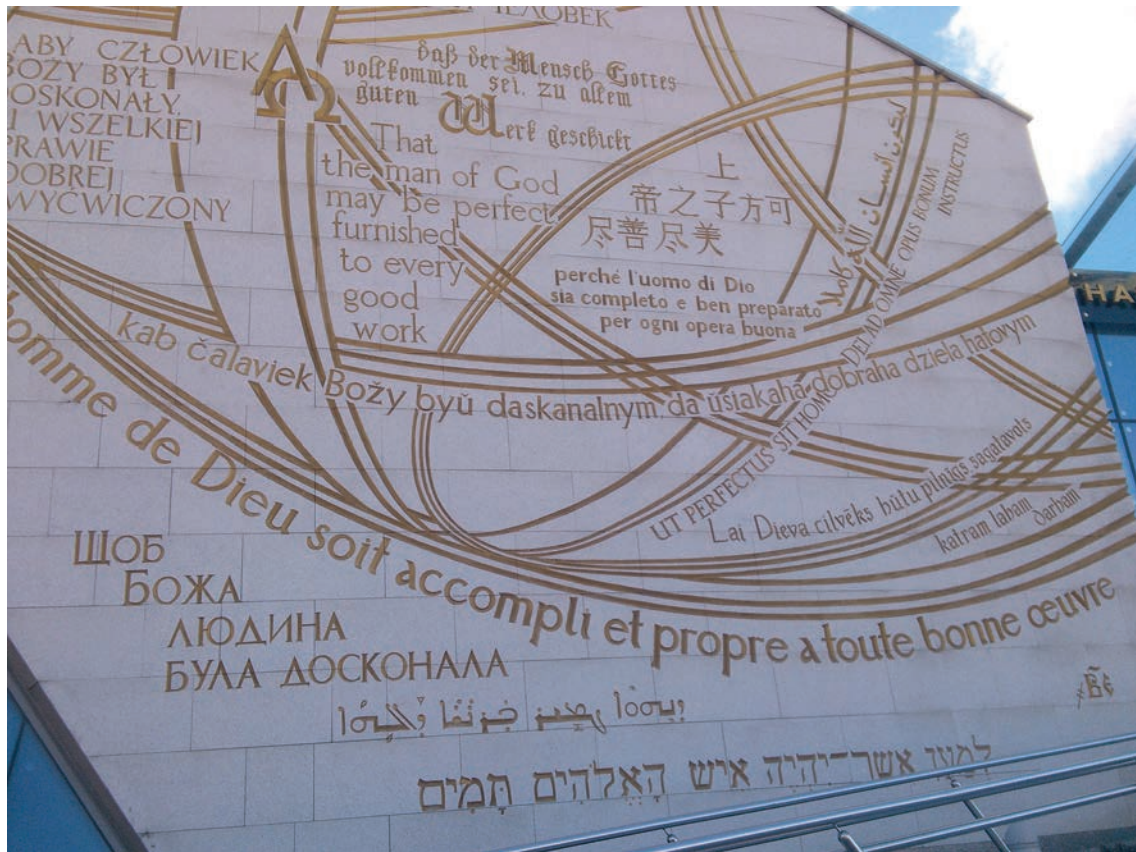 ЧЕЛОВЕК
ABY CZŁOWIEK
BOŻY BYŁ
DOSKONAŁY,
I WSZELKIEJ
PRAWIE
DOBREJ
WYCWICZONY
ΑΩ
daß der Mensch Gottes
vollkommen sei, zu allem
guten Werk geschickt
That
the man of God
may be perfect,
furnished
to every
good
work
上
帝之子方可
尽善尽美
perché l'uomo di Dio
sia completo e ben preparato
per ogni opera buona
ليكون إنسان الله كاملا
UT PERFECTUS SIT HOMO DEI, AD OMNE OPUS BONUM
INSTRUCTUS
HA
kab čalaviek Božy byŭ daskanalnym da ŭsiakaha dobraha dzieła hatovym
Lai Dieva cilvēks būtu pilnīgs sagatavots
katram labam
darbam
homme de Dieu soit accompli et propre a toute bonne œuvre
Щоб
Божа
людина
була досконала
למען אשר־יהיה איש האלהים תמים